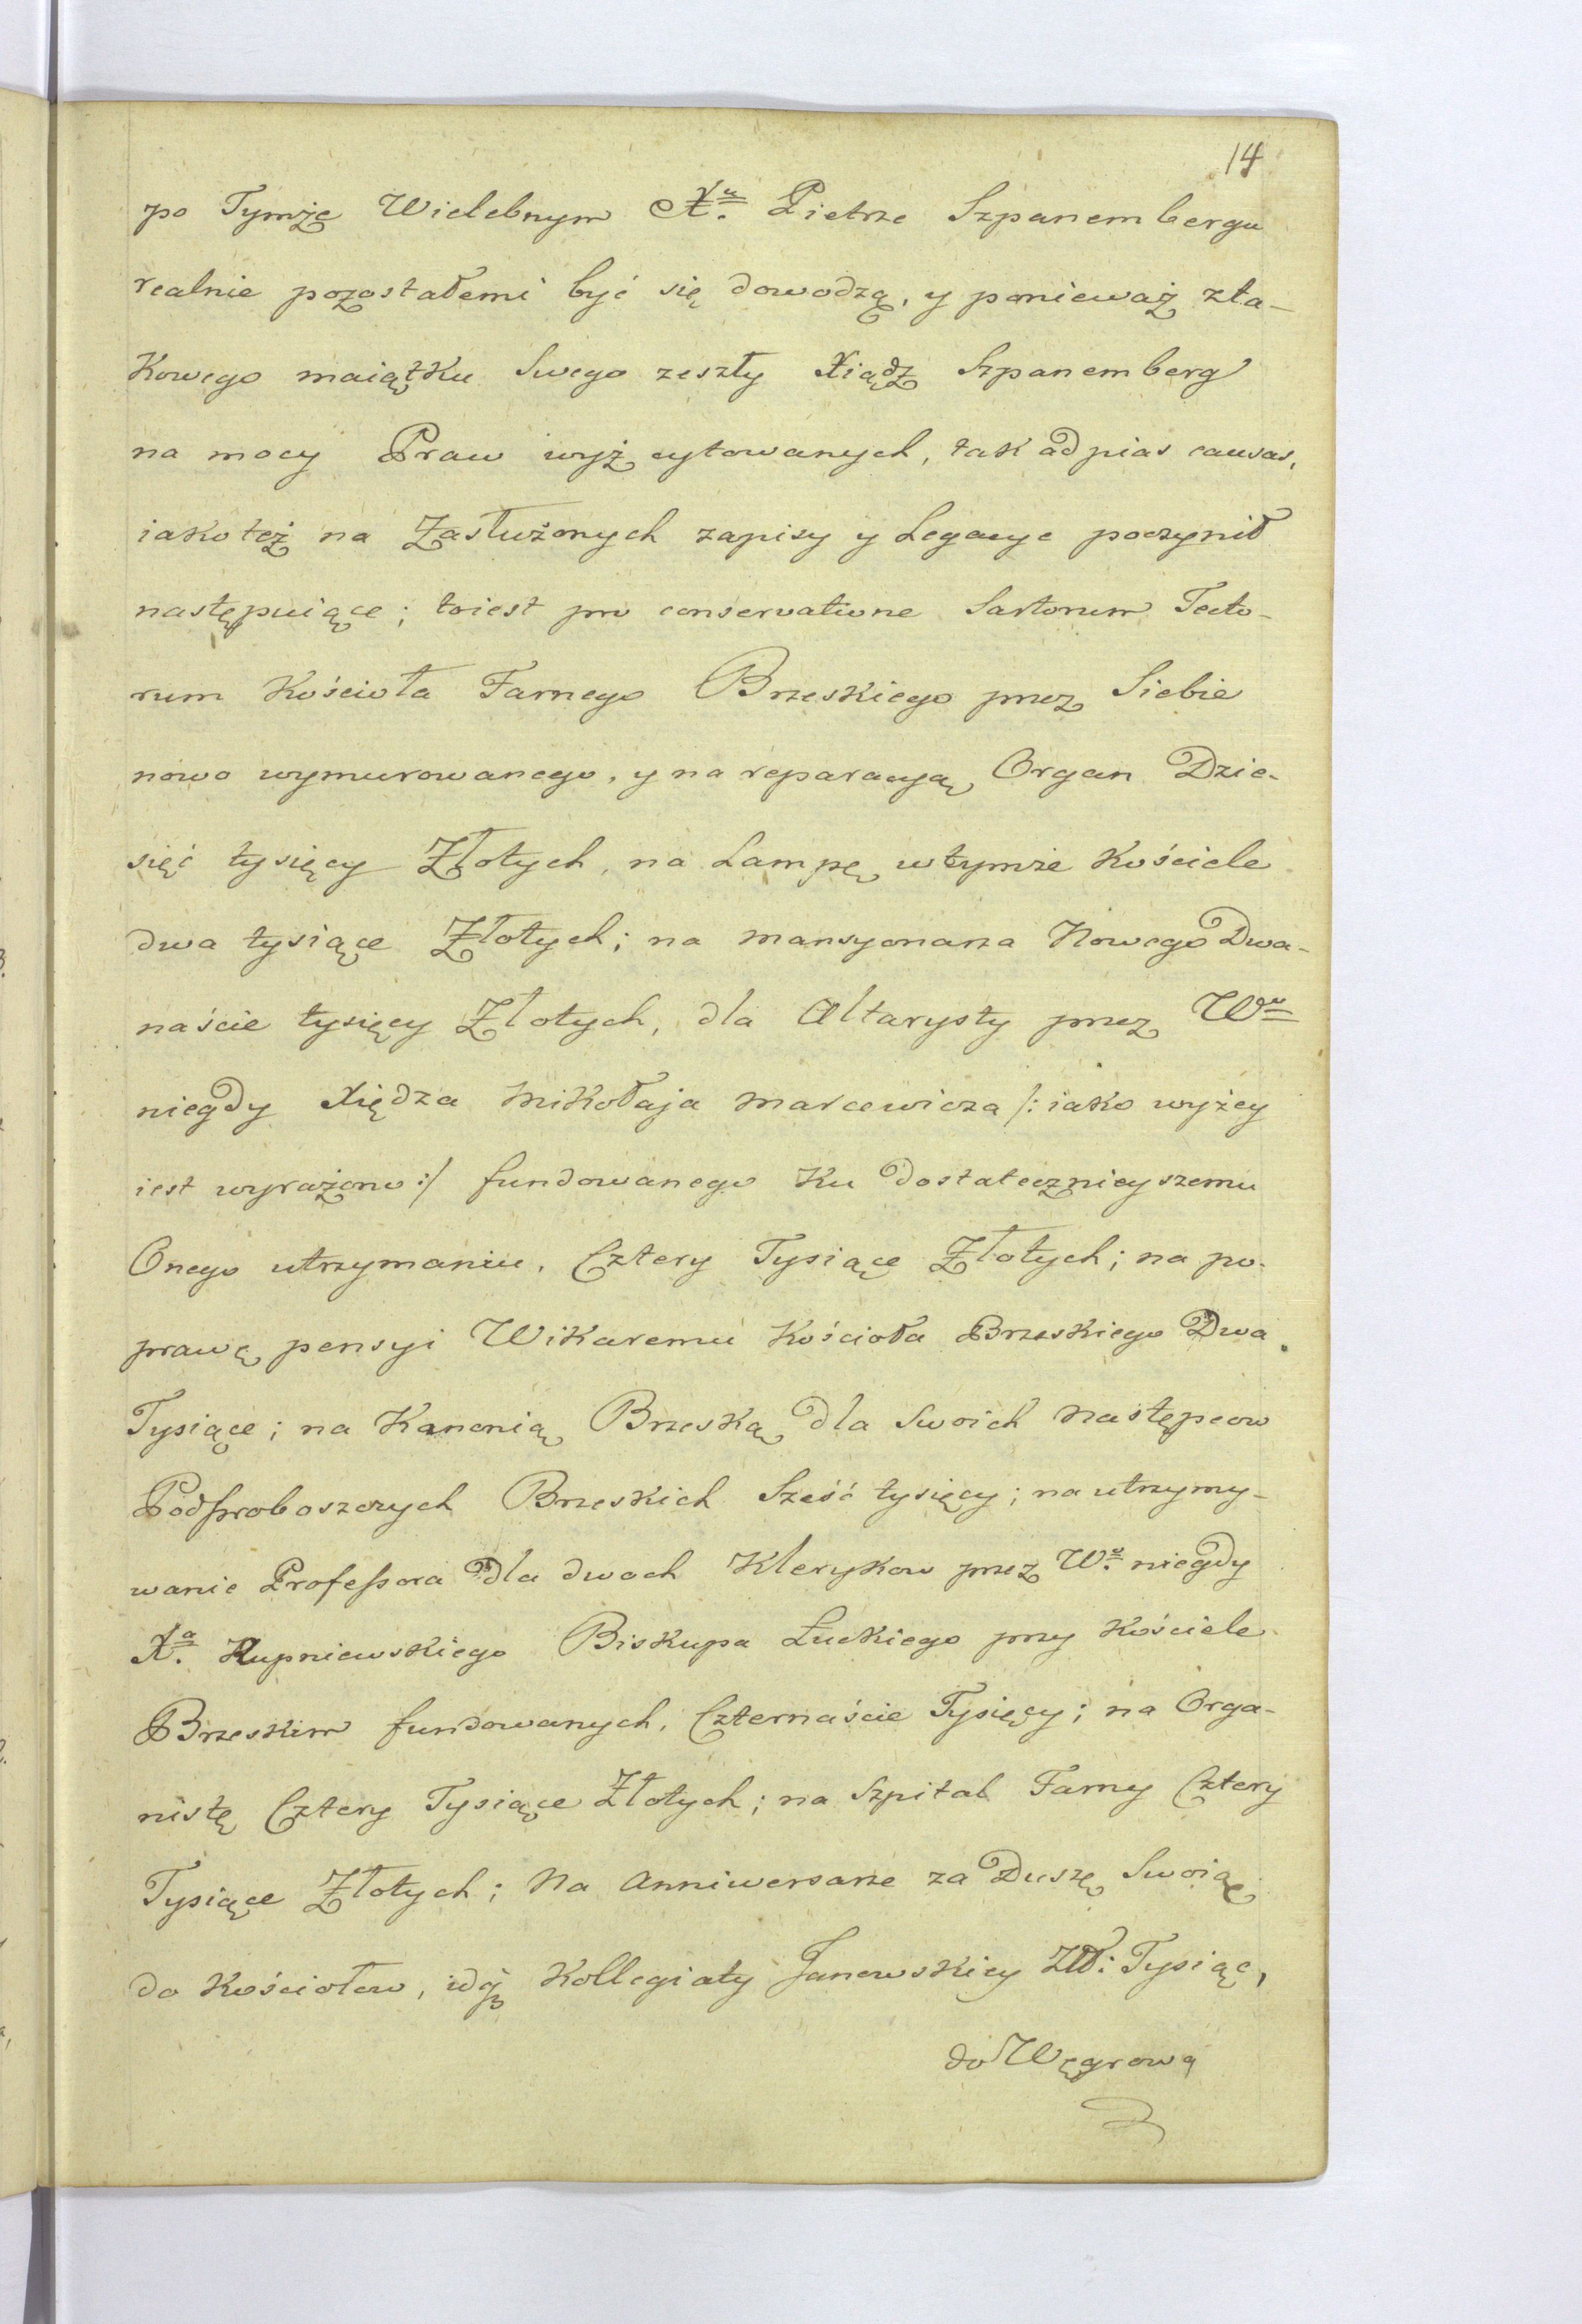 14
po Tymże Wielebnym X.u Pietrze Szpanembergu
realnie pozostałemi być się dowodzą, y ponieważ zta-
kowego maiątku Swego zeszły Xiądz Szpanemberg
na mocy Praw wyż cytowanych, tak ad pias causas,
iako też na Zasłużonych zapisy y Legacye poczynił
następuiące; toiest pro conservatione Sartorum Tecto-
rum Kościoła Farnego Brzeskiego przez Siebie
nowo wymurowanego, y na reparacyą Organ Dzie-
sięć tysięcy Złotych, na Lampę wtymże Kościele
dwa tysiące Złotych; na mansyonarza Nowego Dwa-
naście tysięcy Złotych, dla Altarysty przez W.o
niegdy Xiędza Mikołaja Marcewicza /: iako wyżey
iest wyrażono :/ fundowanego ku dostatecznieyszemu
Onego utrzymaniu, Cztery Tysiące Złotych; na po-
prawę pensyi Wikaremu Kościoła Brzeskiego Dwa
Tysiące; na Kanonią Brzeską dla Swoich Następcow
Podproboszczych Brzeskich Sześć tysięcy; na utrzymy-
wanie Professora dla dwoch Klerykow przez W.o niegdy
X.a Rupniewskiego Biskupa Łuckiego przy Kościele
Brzeskim fundowanych, Czternaście Tysięcy; na Orga-
nistę Cztery Tysiące Złotych; na Szpital Farny Cztery
Tysiące Złotych; Na Anniwersarze za Duszę Swoię
do Kościołow, idq3 Kollegiaty Janowskiey Zł: Tysiąc,
do Węgrowa